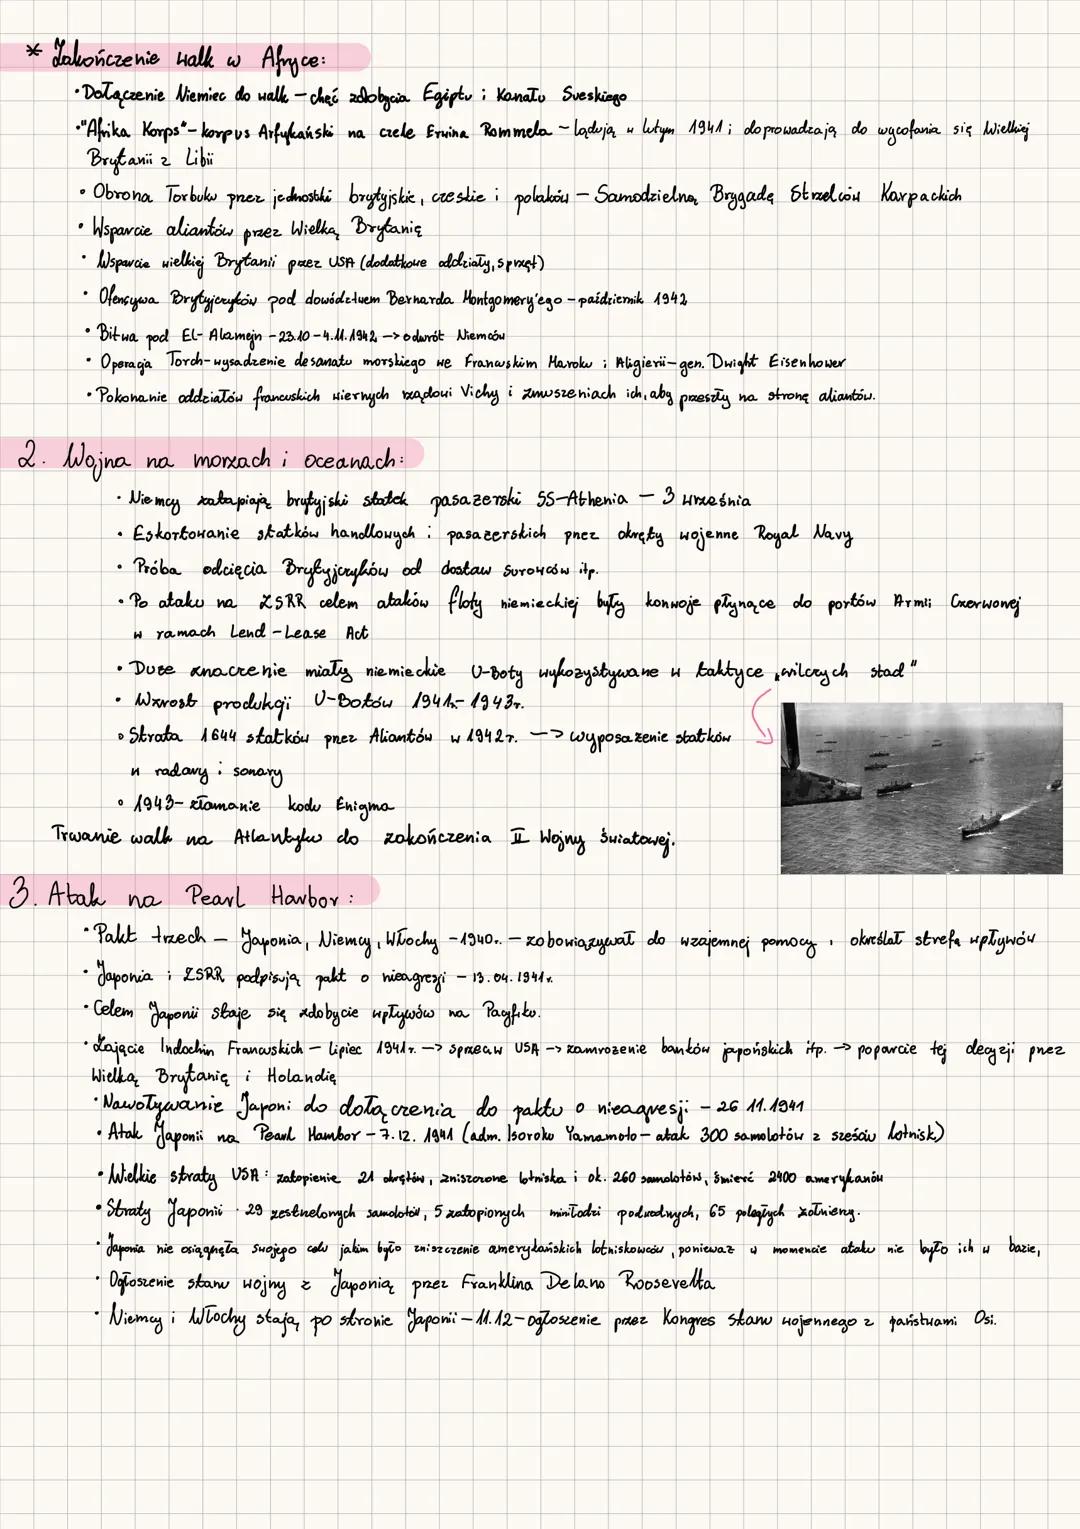 * Zakończenie walk w Afryce:
• Dołączenie Niemiec do walk – chęć zdobycia Egiptu i Kanału Sueskiego
• "Afrika Korps" – korpus Arfykański na czele Erwina Rommela – lądują w lutym 1941 i doprowadzają do wycofania się Wielkiej
Brytanii z Libii
• Obrona Torbuku przez jednostki brytyjskie, czeskie i polaków – Samodzielną Brygadę Strzelców Karpackich
• Wsparcie aliantów przez Wielką Brytanię
• Wsparcie wielkiej Brytanii przez USA (dodatkowe oddziały, sprzęt)
• Ofensywa Brytyjczyków pod dowództwem Bernarda Montgomery'ego – październik 1942
• Bitwa pod El-Alamejn – 23.10 – 4.11.1942 –> odwrót Niemców
• Operacja Torch – wysadzenie desantu morskiego we Francuskim Maroku i Algierii – gen. Dwight Eisenhower
• Pokonanie oddziałów francuskich wiernych rządowi Vichy i zmuszeniach ich, aby przeszły na stronę aliantów.
2. Wojna na morzach i oceanach:
• Niemcy zatapiają brytyjski statek pasażerski SS-Athenia – 3 września
• Eskortowanie statków handlowych i pasażerskich przez okręty wojenne Royal Navy
• Próba odcięcia Brytyjczyków od dostaw surowców itp.
• Po ataku na ZSRR celem ataków floty niemieckiej były konwoje płynące do portów Armii Czerwonej
w ramach Lend-Lease Act
• Duże znaczenie miały niemieckie U-Boty wykozystywane w taktyce „wilczych stad"
• Wzrost produkcji U-Botów 1941r.- 1943r.
• Strata 1644 statków przez Aliantów w 1942r. –> wyposażenie statków
w radary i sonary
• 1943- złamanie kodu Enigma
Trwanie walk na Atlantyku do zakończenia II Wojny Światowej.
3. Atak na Pearl Harbor:
• Pakt trzech – Japonia, Niemcy, Włochy – 1940r. – zobowiązywał do wzajemnej pomocy i określał strefę wpływów
• Japonia i ZSRR podpisują pakt o nieagresji – 13.04.1941r.
• Celem Japonii staje się zdobycie wpływów na Pacyfiku.
• Zajęcie Indochin Francuskich – lipiec 1941r. –> sprzeciw USA –> zamrożenie banków japońskich itp. –> poparcie tej decyzji przez
Wielką Brytanię i Holandię
• Nawoływanie Japoni do dołączenia do paktu o nieagresji – 26 11.1941
• Atak Japonii na Pearl Hambor – 7.12. 1941 (adm. Isoroku Yamamoto – atak 300 samolotów z sześciu lotnisk)
• Wielkie straty USA: zatopienie 21 okrętów, zniszczone lotniska i ok. 260 samolotów, śmierć 2400 amerykanów
• Straty Japonii · 29 zestrzelonych samolotów, 5 zatopionych miniłodzi podwodnych, 65 poległych żołnierzy.
• Japonia nie osiągnęła swojego celu jakim było zniszczenie amerykańskich lotniskowców, ponieważ w momencie ataku nie było ich w bazie,
• Ogłoszenie stanu wojny z Japonią przez Franklina Delano Roosevelta
• Niemcy i Włochy stają po stronie Japonii – 11.12 – ogłoszenie przez Kongres stanu wojennego z państwami Osi.